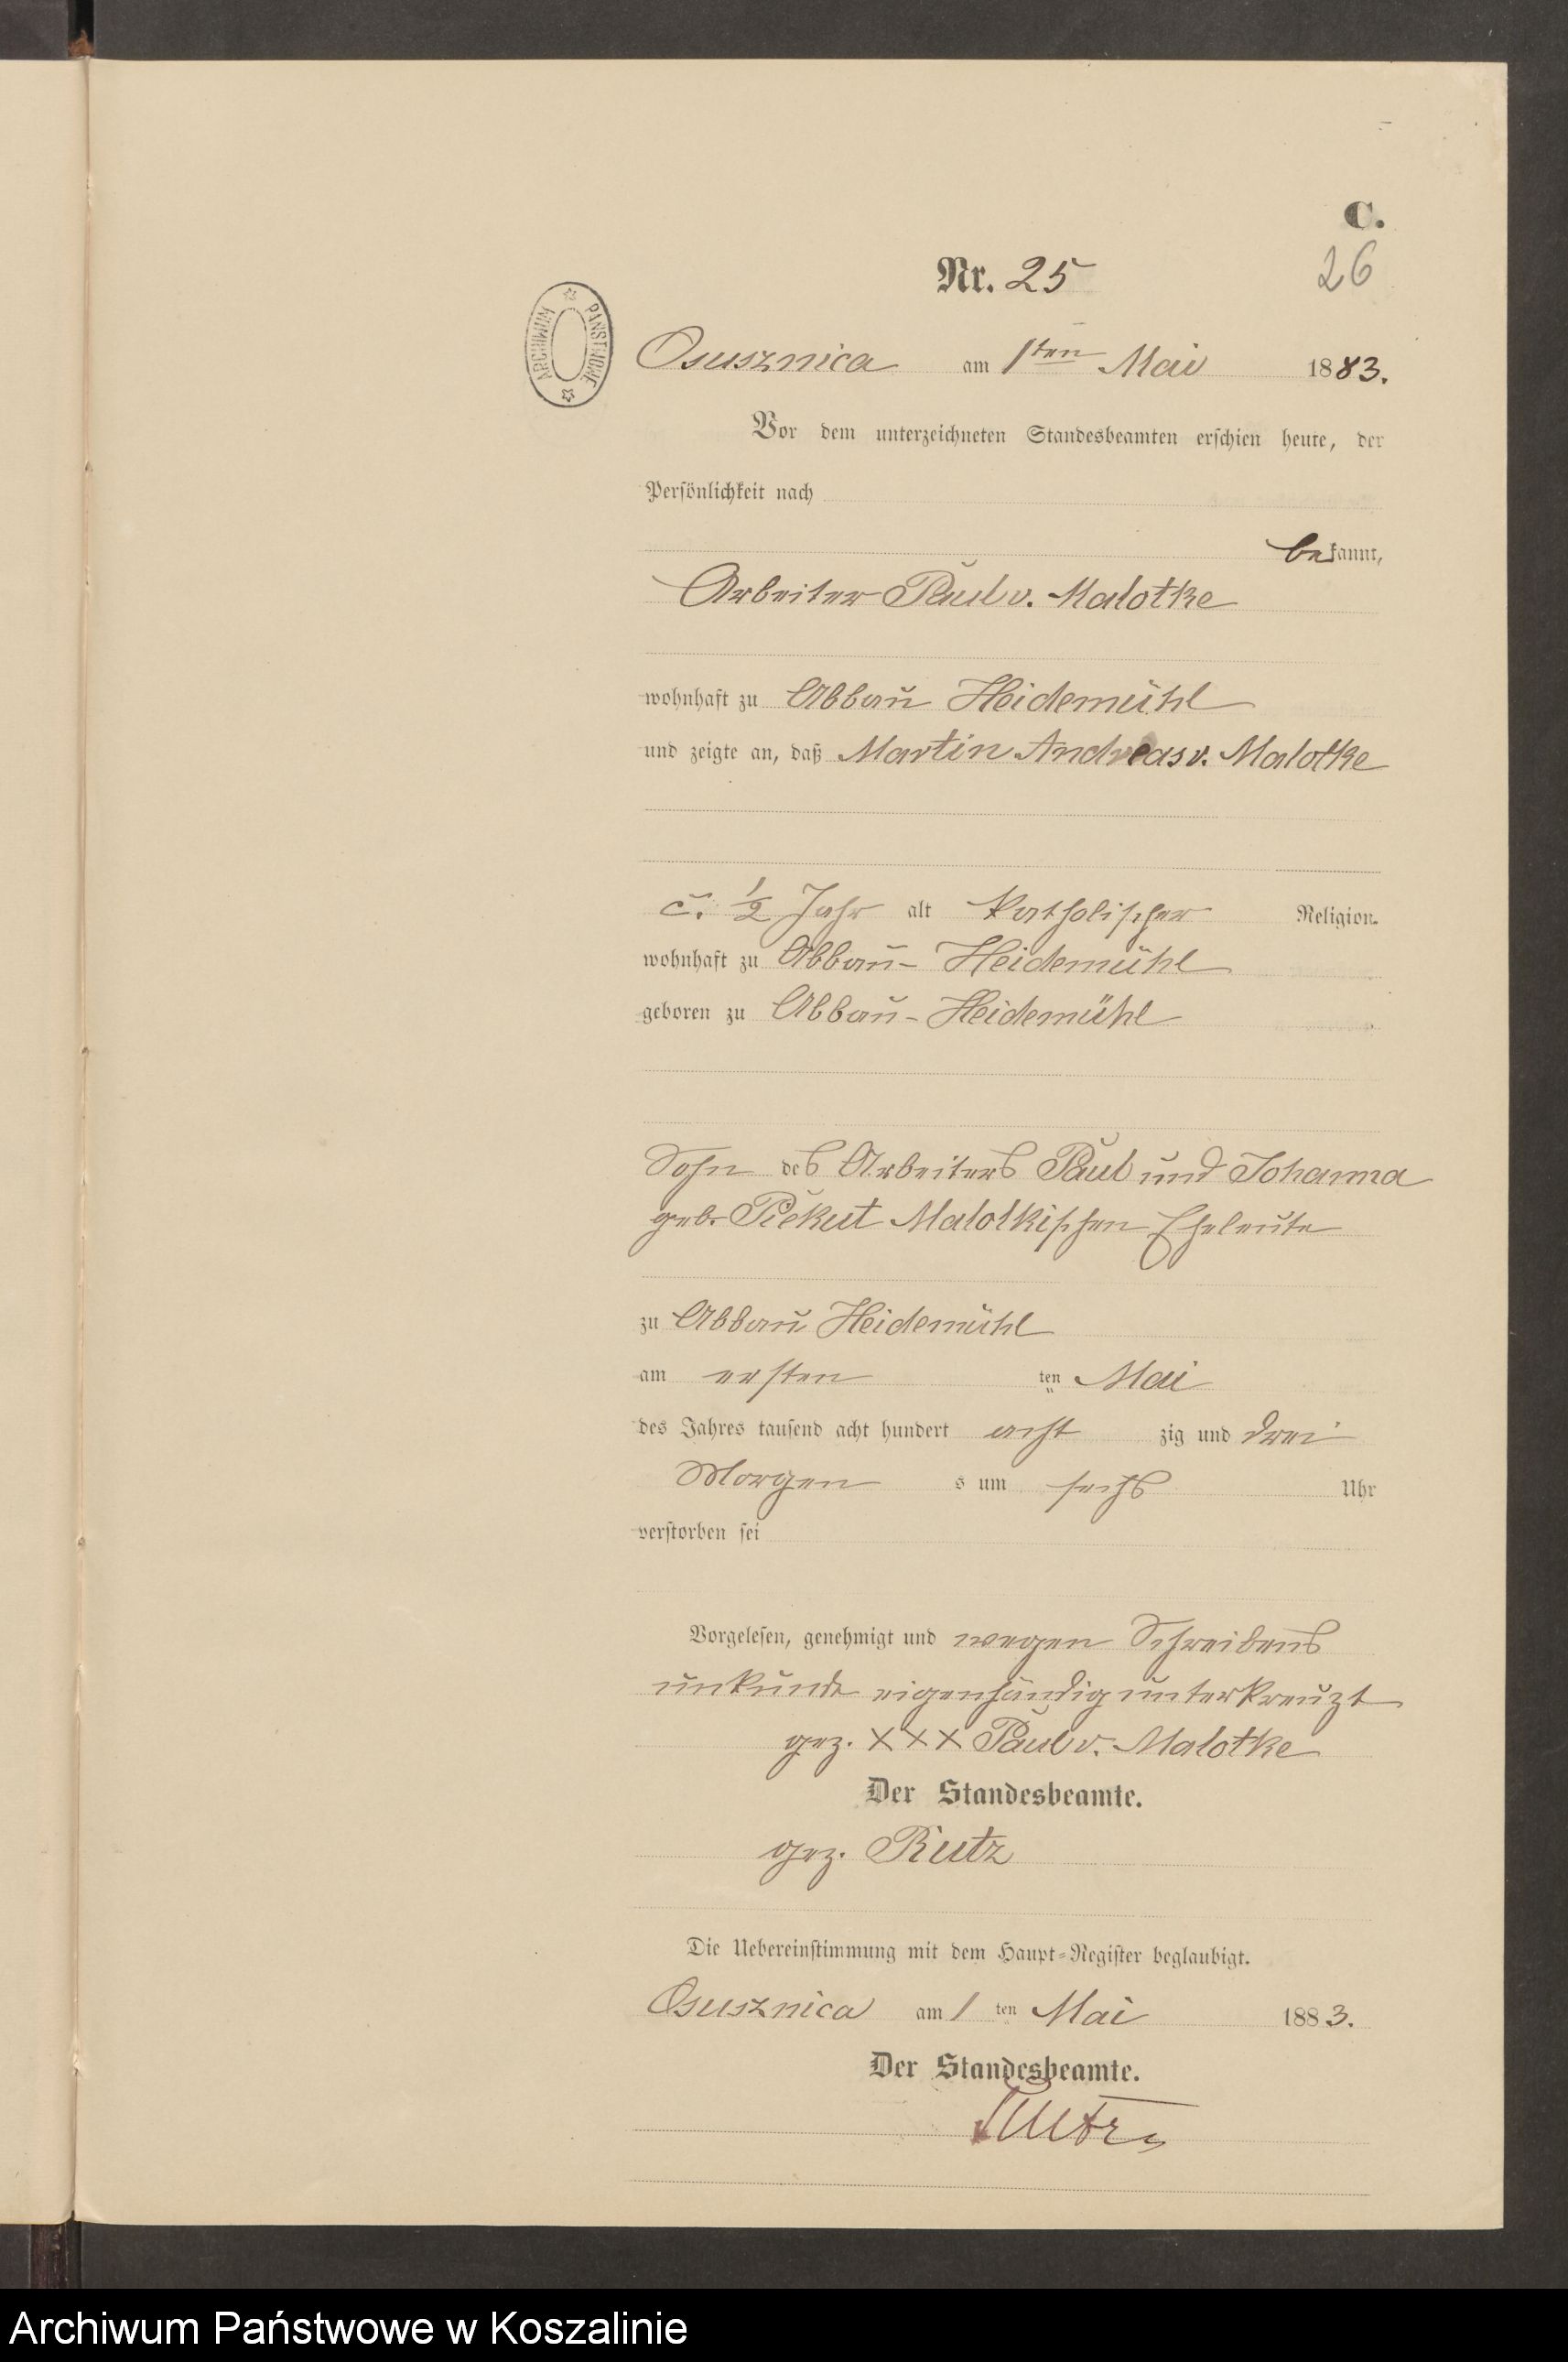 C.
Nr. 25
26
ARCHIWUM PAŃSTWOWE
Osusznica am 1ten Mai 1883.
Vor dem unterzeichneten Standesbeamten erschien heute, der
Persönlichkeit nach
bekannt,
Arbeiter Paul v. Malotke
wohnhaft zu Abbau Heidemühl
und zeigte an, daß Martin Andreas v. Malotke
c. 1/2 Jahr alt katholischer Religion.
wohnhaft zu Abbau-Heidemühl
geboren zu Abbau-Heidemühl
Sohn des Arbeiters Paul und Johanna
geb. Piekut Malotkischen Eheleute
zu Abbau Heidemühl
am ersten ten Mai
des Jahres tausend acht hundert acht zig und drei
Morgen s um sechs Uhr
verstorben sei
Vorgelesen, genehmigt und wegen Schreibens
unkunde eigenhändig unterkreuzt
gez. XXX Paul v. Malotke
Der Standesbeamte.
gez. Rutz
Die Uebereinstimmung mit dem Haupt-Register beglaubigt.
Osusznica am 1 ten Mai 1883.
Der Standesbeamte.
Rutz
Archiwum Państwowe w Koszalinie